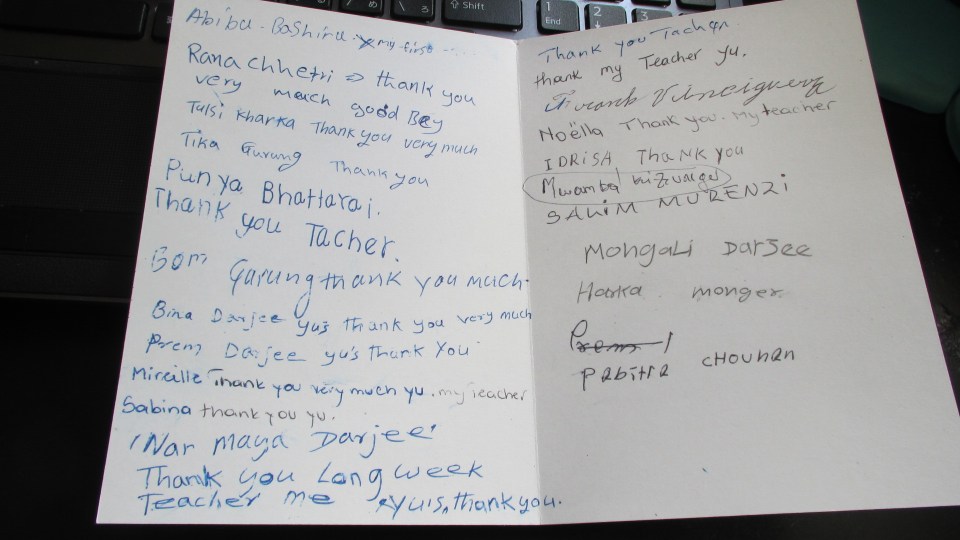 Shift
1
End
2
3
Abiba - Bashiru. my first
Rana chhetri => thank you
very much good Bey
Tulsi kharka Thank you very much
Tika Gurung Thank you
Punya Bhattarai.
Thank you Tacher.
Gurung thank you much.
Bina Darjee yu's thank you very much
Prem Darjee yu's Thank You
Mireille Thank you very much yu. my teacher
Sabina thank you yu.
'Nar maya Darjee'
Thank you Long week
Teacher me yuis, thank you.
Thank you Tacher.
thank my Teacher yu.
Vinciguerra
Noëlla Thank you. my teacher
IDRISA Thank you
Mwamba
SALIM MURENZI
Mongali Darjee
Harka monger
Prem
Pabitra chouhan